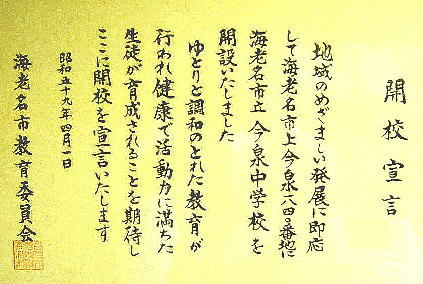 開校宣言
地域のめざましい発展に即応
して海老名市上今泉八四〇番地に
海老名市立今泉中学校を
開設いたしました
ゆとりと調和のとれた教育が
行われ健康で活動力に満ちた
生徒が育成されることを期待し
ここに開校を宣言いたします
昭和五十九年四月一日
海老名市教育委員会